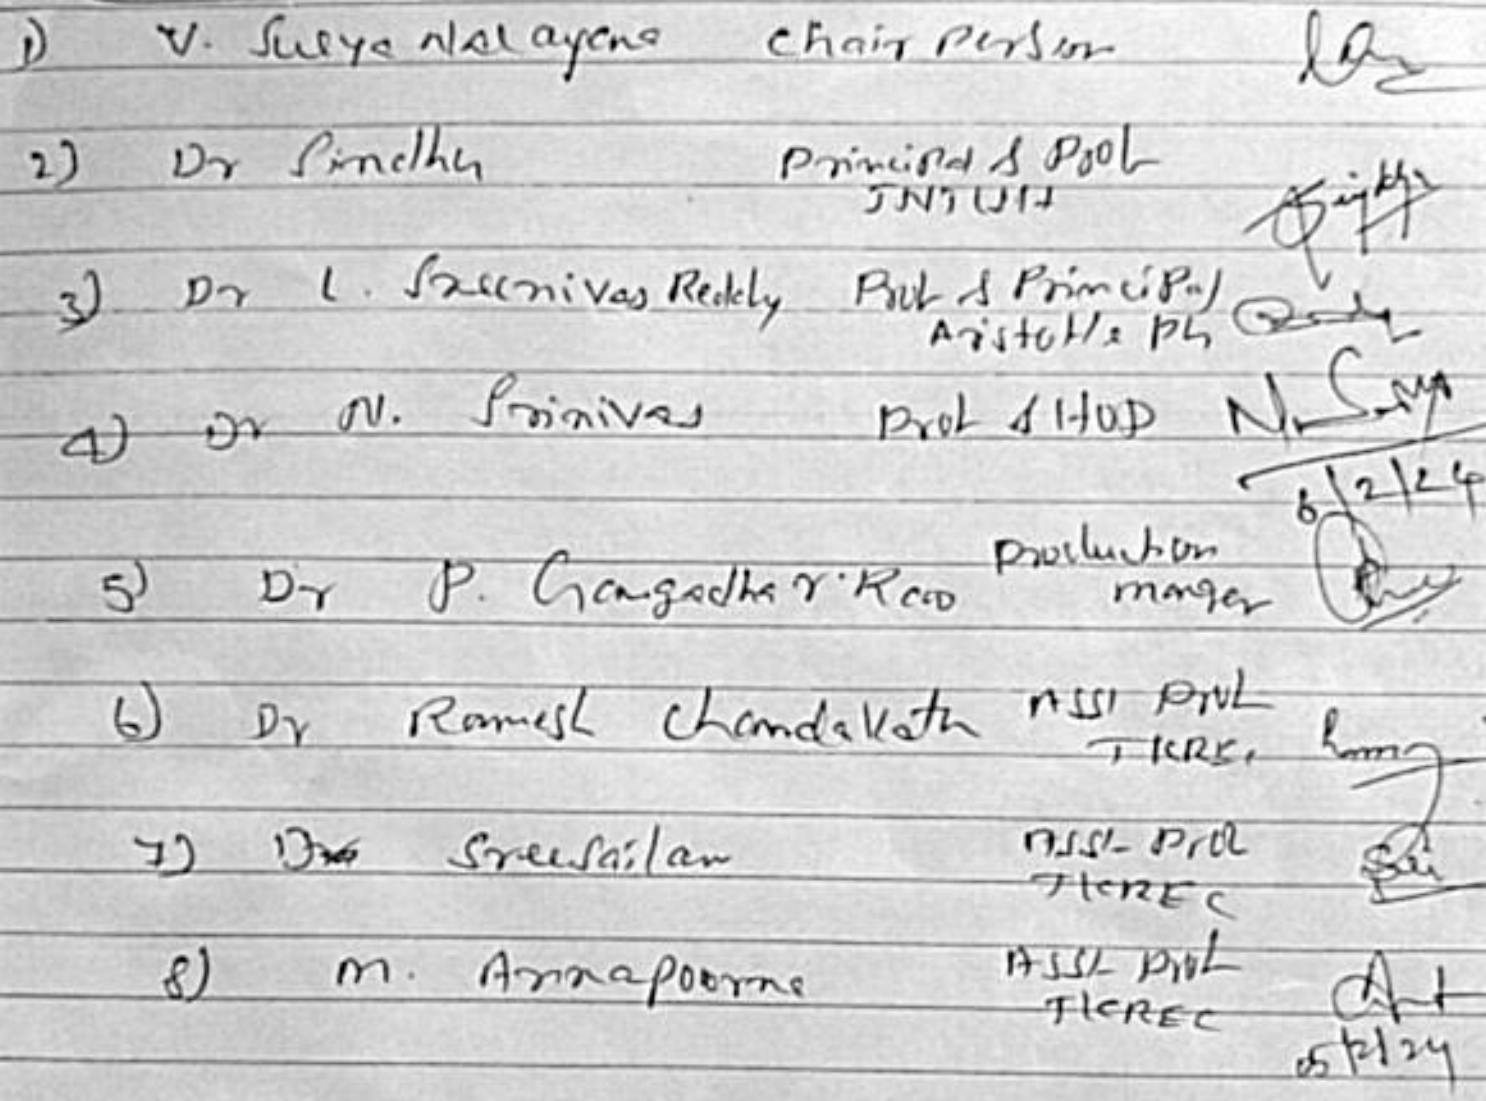 1) V. Surya Narayana Chair person
2) Dr Sindhu Principal & Prof
JNTUH
3) Dr L. Sreenivas Reddy Prof & Principal
Aristotle Ph
4) Dr N. Srinivas Prof & HOD
6/2/24
5) Dr P. Gangadhar Rao Production
manger
6) Dr Ramesh Chandavath Asst Prof
TKREC
7) Sreesailam Asst Prof
TKREC
8) M. Annapoorna Asst Prof
TKREC
05/2/24